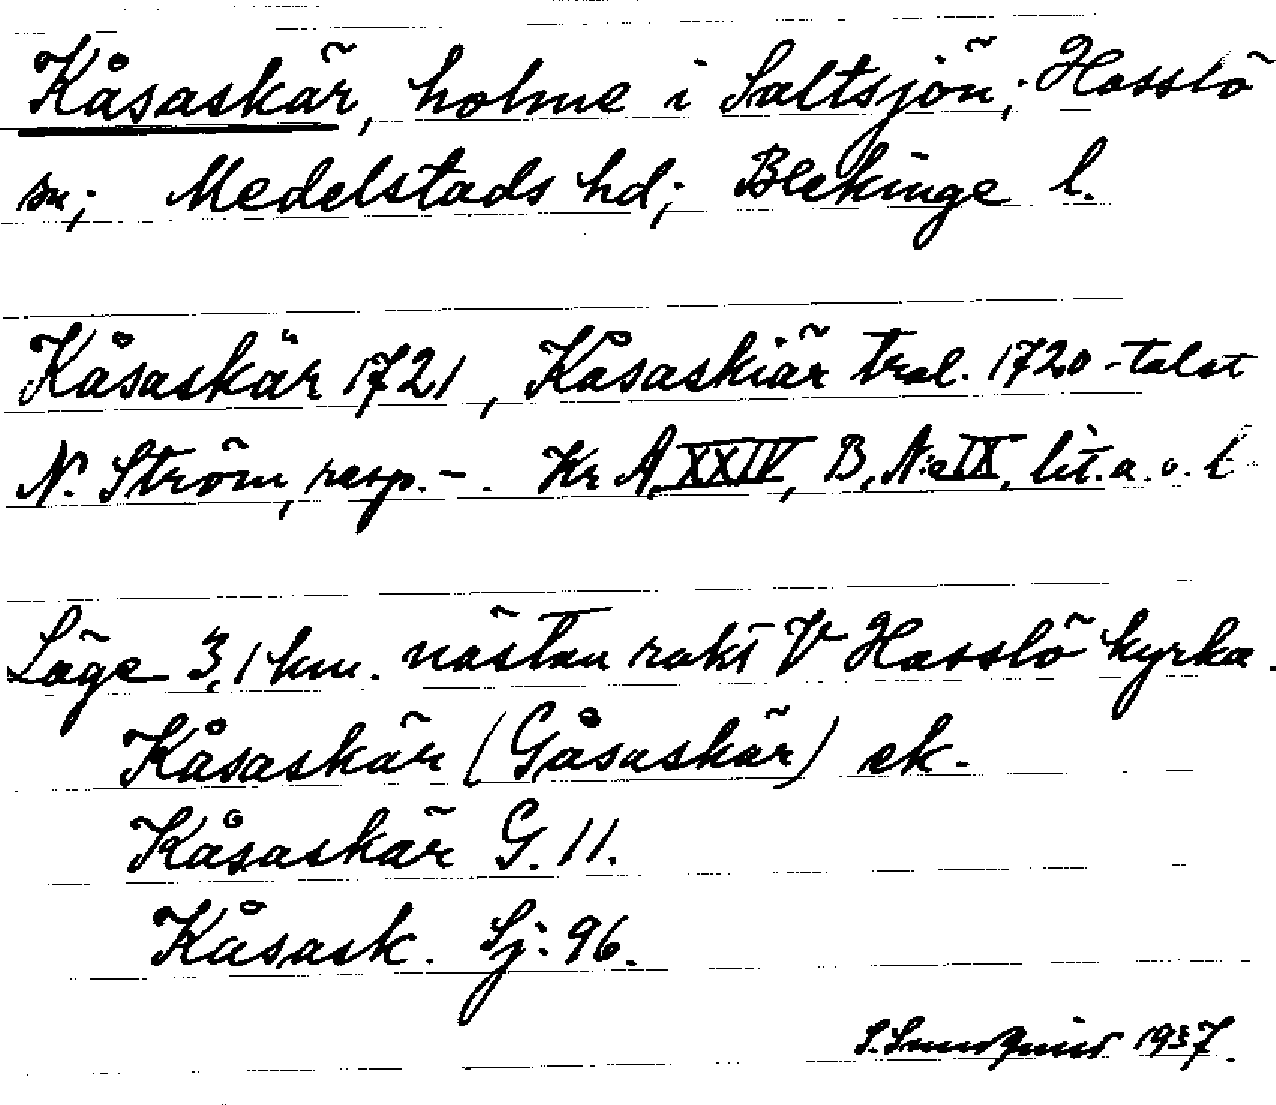 Kåsaskär, holme i Saltsjön; Hasslö
sn; Medelstads hd; Blekinge l.
Kåsaskär 1721, Kåsaskiär trol. 1720-talet
N. Ström, resp. -. Kr A, XXIV, B, N:o IX, lit. a. o. l
Läge 3,1 km. nästan rakt V Hasslö kyrka.
Kåsaskär (Gåsaskär) ek.
Kåsaskär G. 11.
Kåsask. Sj: 96.
S. 1937.